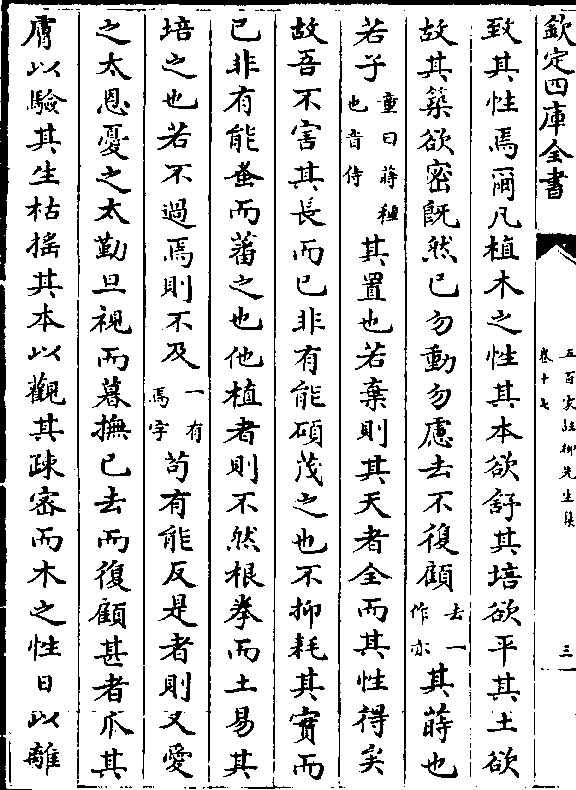 欽定四庫全書
五百家註柳先生集
卷十七
三
致其性焉爾凡植木之性其本欲舒其培欲平其土欲
故其築欲密既然已勿動勿慮去不復顧去一作亦其蒔也
若子童曰蒔種也音侍其置也若棄則其天者全而其性得矣
故吾不害其長而已非有能碩茂之也不抑耗其實而
已非有能蚤而蕃之也他植者則不然根拳而土易其
培之也若不過焉則不及一有焉字苟有能反是者則又愛
之太恩憂之太勤旦視而暮撫已去而復顧甚者爪其
膚以驗其生枯搖其本以觀其疎密而木之性日以離